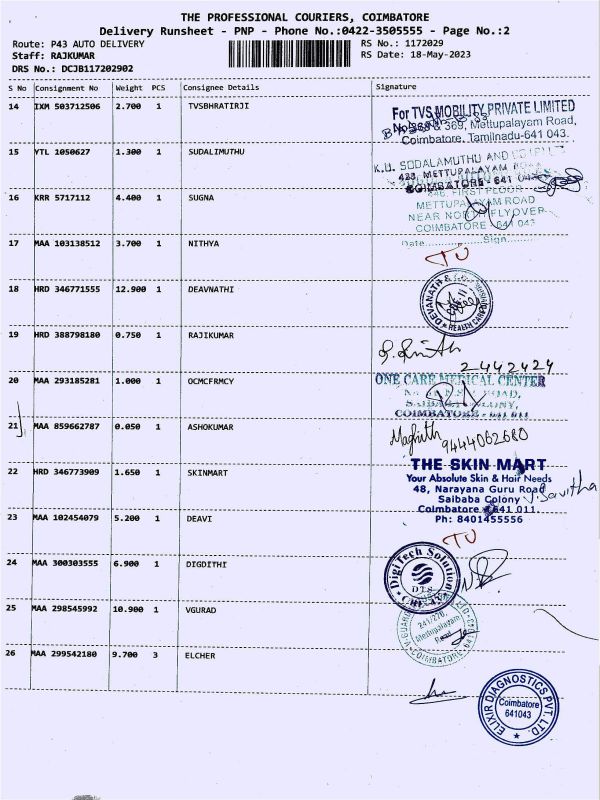 THE PROFESSIONAL COURIERS, COIMBATORE
Delivery Runsheet - PNP - Phone No.:0422-3505555 - Page No.:2
Route: P43 AUTO DELIVERY
Staff: RAJKUMAR
DRS No.: DCJB117202902
RS No.: 1172029
RS Date: 18-May-2023
S No Consignment No Weight PCS Consignee Details Signature
14 IXM 503712506 2.700 1 TVSBHRATIRJI
For TVS MOBILITY PRIVATE LIMITED
& 369, Mettupalayam Road,
Coimbatore, Tamilnadu-641 043.
15 YTL 1050627 1.300 1 SUDALIMUTHU
K.U. SODALAMUTHU AND
423, METTUPALAYAM
COIMBATORE - 641
16 KRR 5717112 4.400 1 SUGNA
FIRST FLOOR
METTUPALAYAM ROAD
NEAR NORTH FLYOVER
COIMBATORE - 641 043
17 MAA 103138512 3.700 1 NITHYA
Date Sign
18 HRD 346771555 12.900 1 DEAVNATHI
DEVANATH &
HEALTH CARE
19 HRD 388798180 0.750 1 RAJIKUMAR
2442424
20 MAA 293185281 1.000 1 OCMCFRMCY
ONE CARE MEDICAL CENTER
ROAD,
COLONY,
COIMBATORE - 641 011
21 MAA 859662787 0.050 1 ASHOKUMAR
9444062680
22 HRD 346773909 1.650 1 SKINMART
THE SKIN MART
Your Absolute Skin & Hair Needs
48, Narayana Guru Road
Saibaba Colony
Coimbatore 641 011.
Ph: 8401455556
J. Savitha
23 MAA 102454079 5.200 1 DEAVI
24 MAA 300303555 6.900 1 DIGDITHI
Digi Tech Solution
D.T.S
25 MAA 298545992 10.900 1 VGURAD
V-GUARD
241/270,
Mettupalayam
Road
COIMBATORE
26 MAA 299542180 9.700 3 ELCHER
ELIXIR DIAGNOSTICS PVT. LTD.
Coimbatore
641043